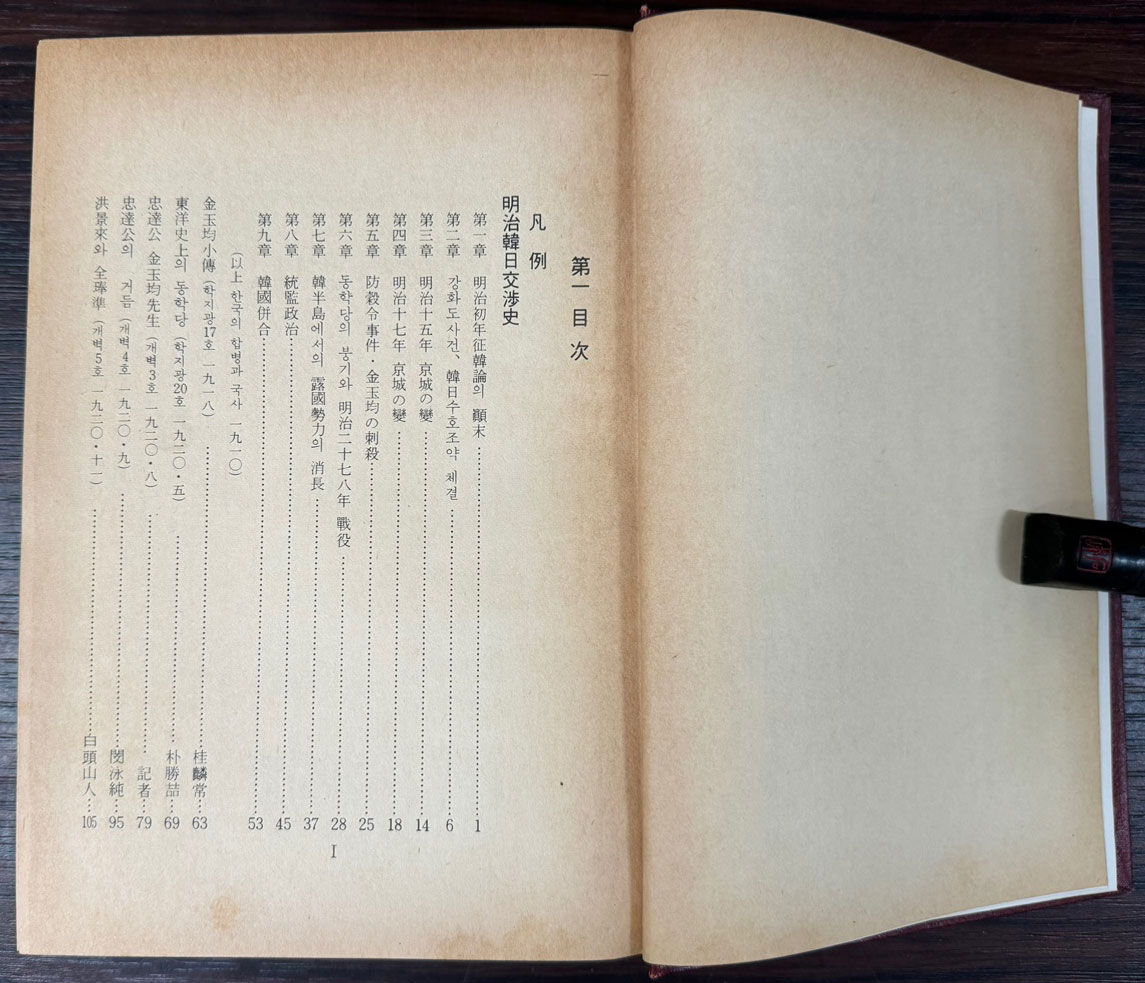 第一目次
凡例
明治韓日交渉史
第一章 明治初年征韓論의 顚末……1
第二章 강화도사건、韓日수호조약 체결……6
第三章 明治十五年 京城の變……14
第四章 明治十七年 京城の變……18
第五章 防穀令事件・金玉均の刺殺……25
第六章 동학당의 붕기와 明治二十七八年 戰役……28
第七章 韓半島에서의 露國勢力의 消長……37
第八章 統監政治……45
第九章 韓國併合……53
(以上 한국의 합병과 국사 一九一〇)
金玉均小傳 (학지광17호 一九一八)……桂麟常……63
東洋史上의 동학당 (학지광20호 一九二〇・五)……朴勝喆……69
忠達公 金玉均先生 (개벽3호 一九二〇・八)……記者……79
忠達公의 거듬 (개벽4호 一九二〇・九)……閔泳純……95
洪景來와 全琫準 (개벽5호 一九二〇・十一)……白頭山人……105
I